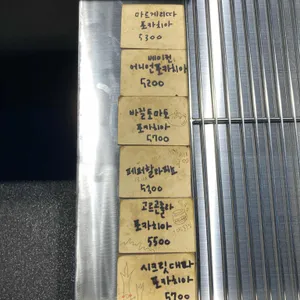 마르게리따
포카치아
5300
베이컨
어니언포카치아
5200
바질토마토
포카치아
5700
페퍼할라피뇨
5300
고르곤졸라
포카치아
5500
시크릿대파
포카치아
5700